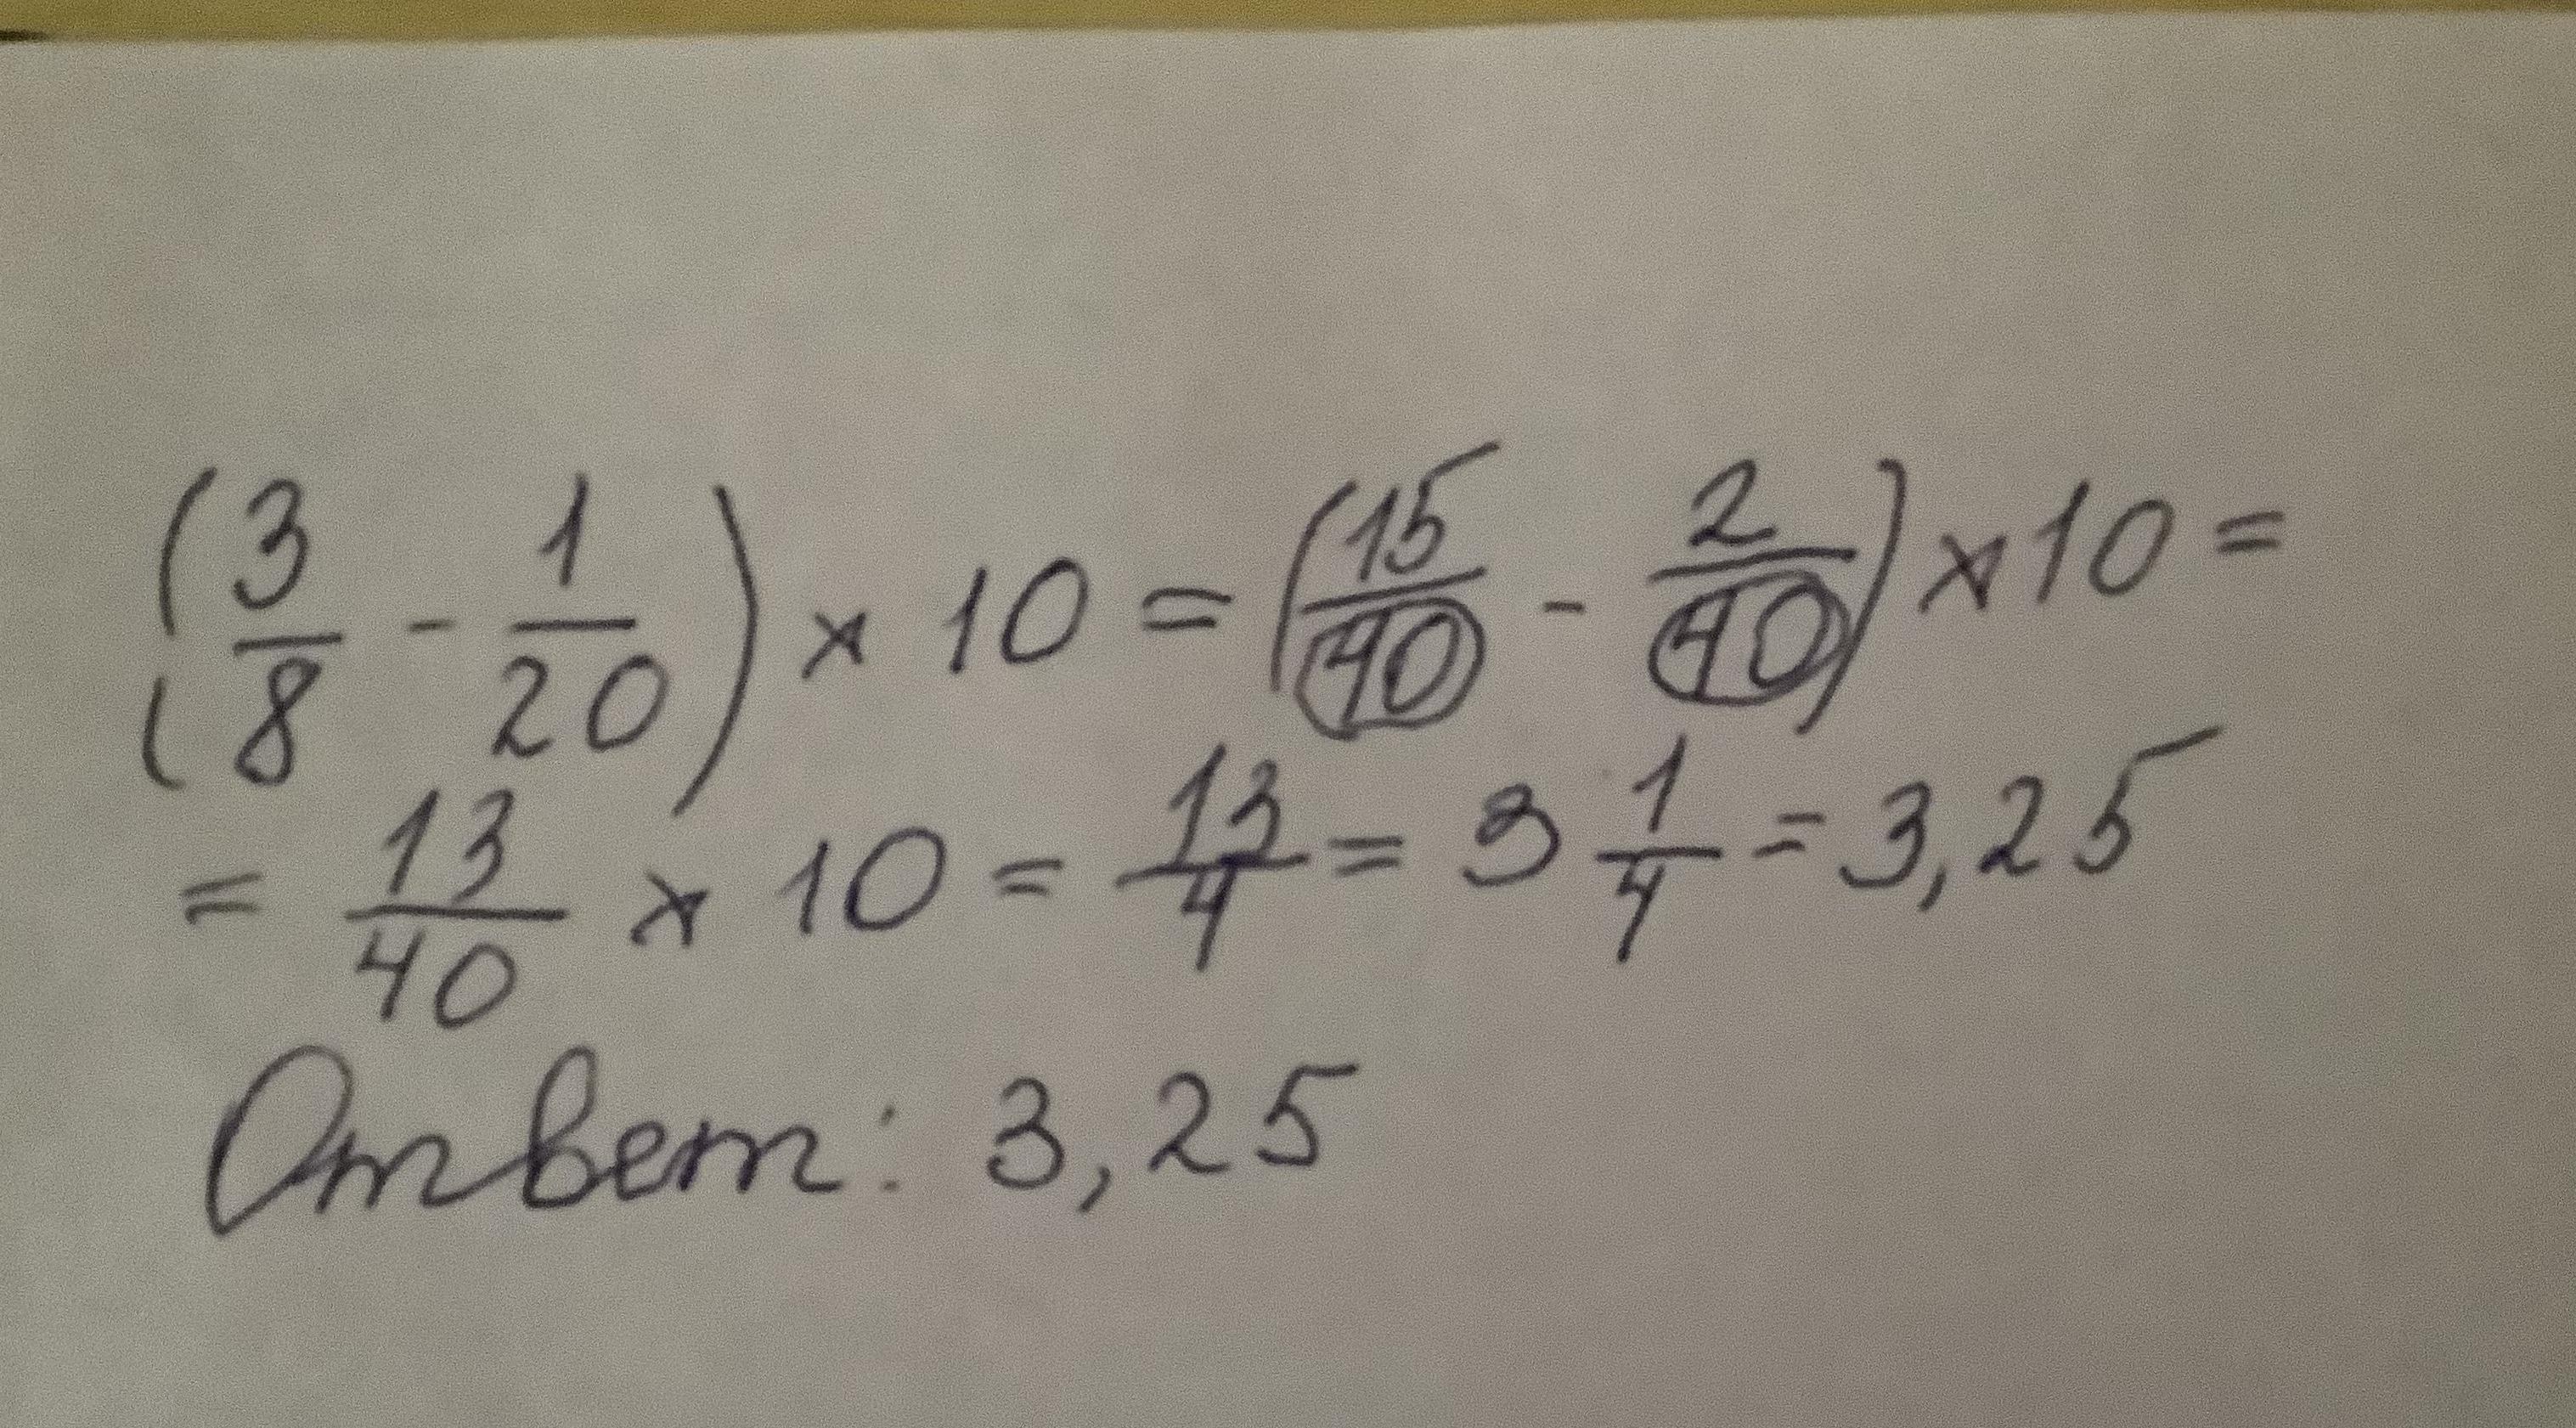 (3/8 - 1/20) × 10 = (15/40 - 2/40) × 10 =
= 13/40 × 10 = 13/4 = 3 1/4 = 3,25
Ответ: 3,25